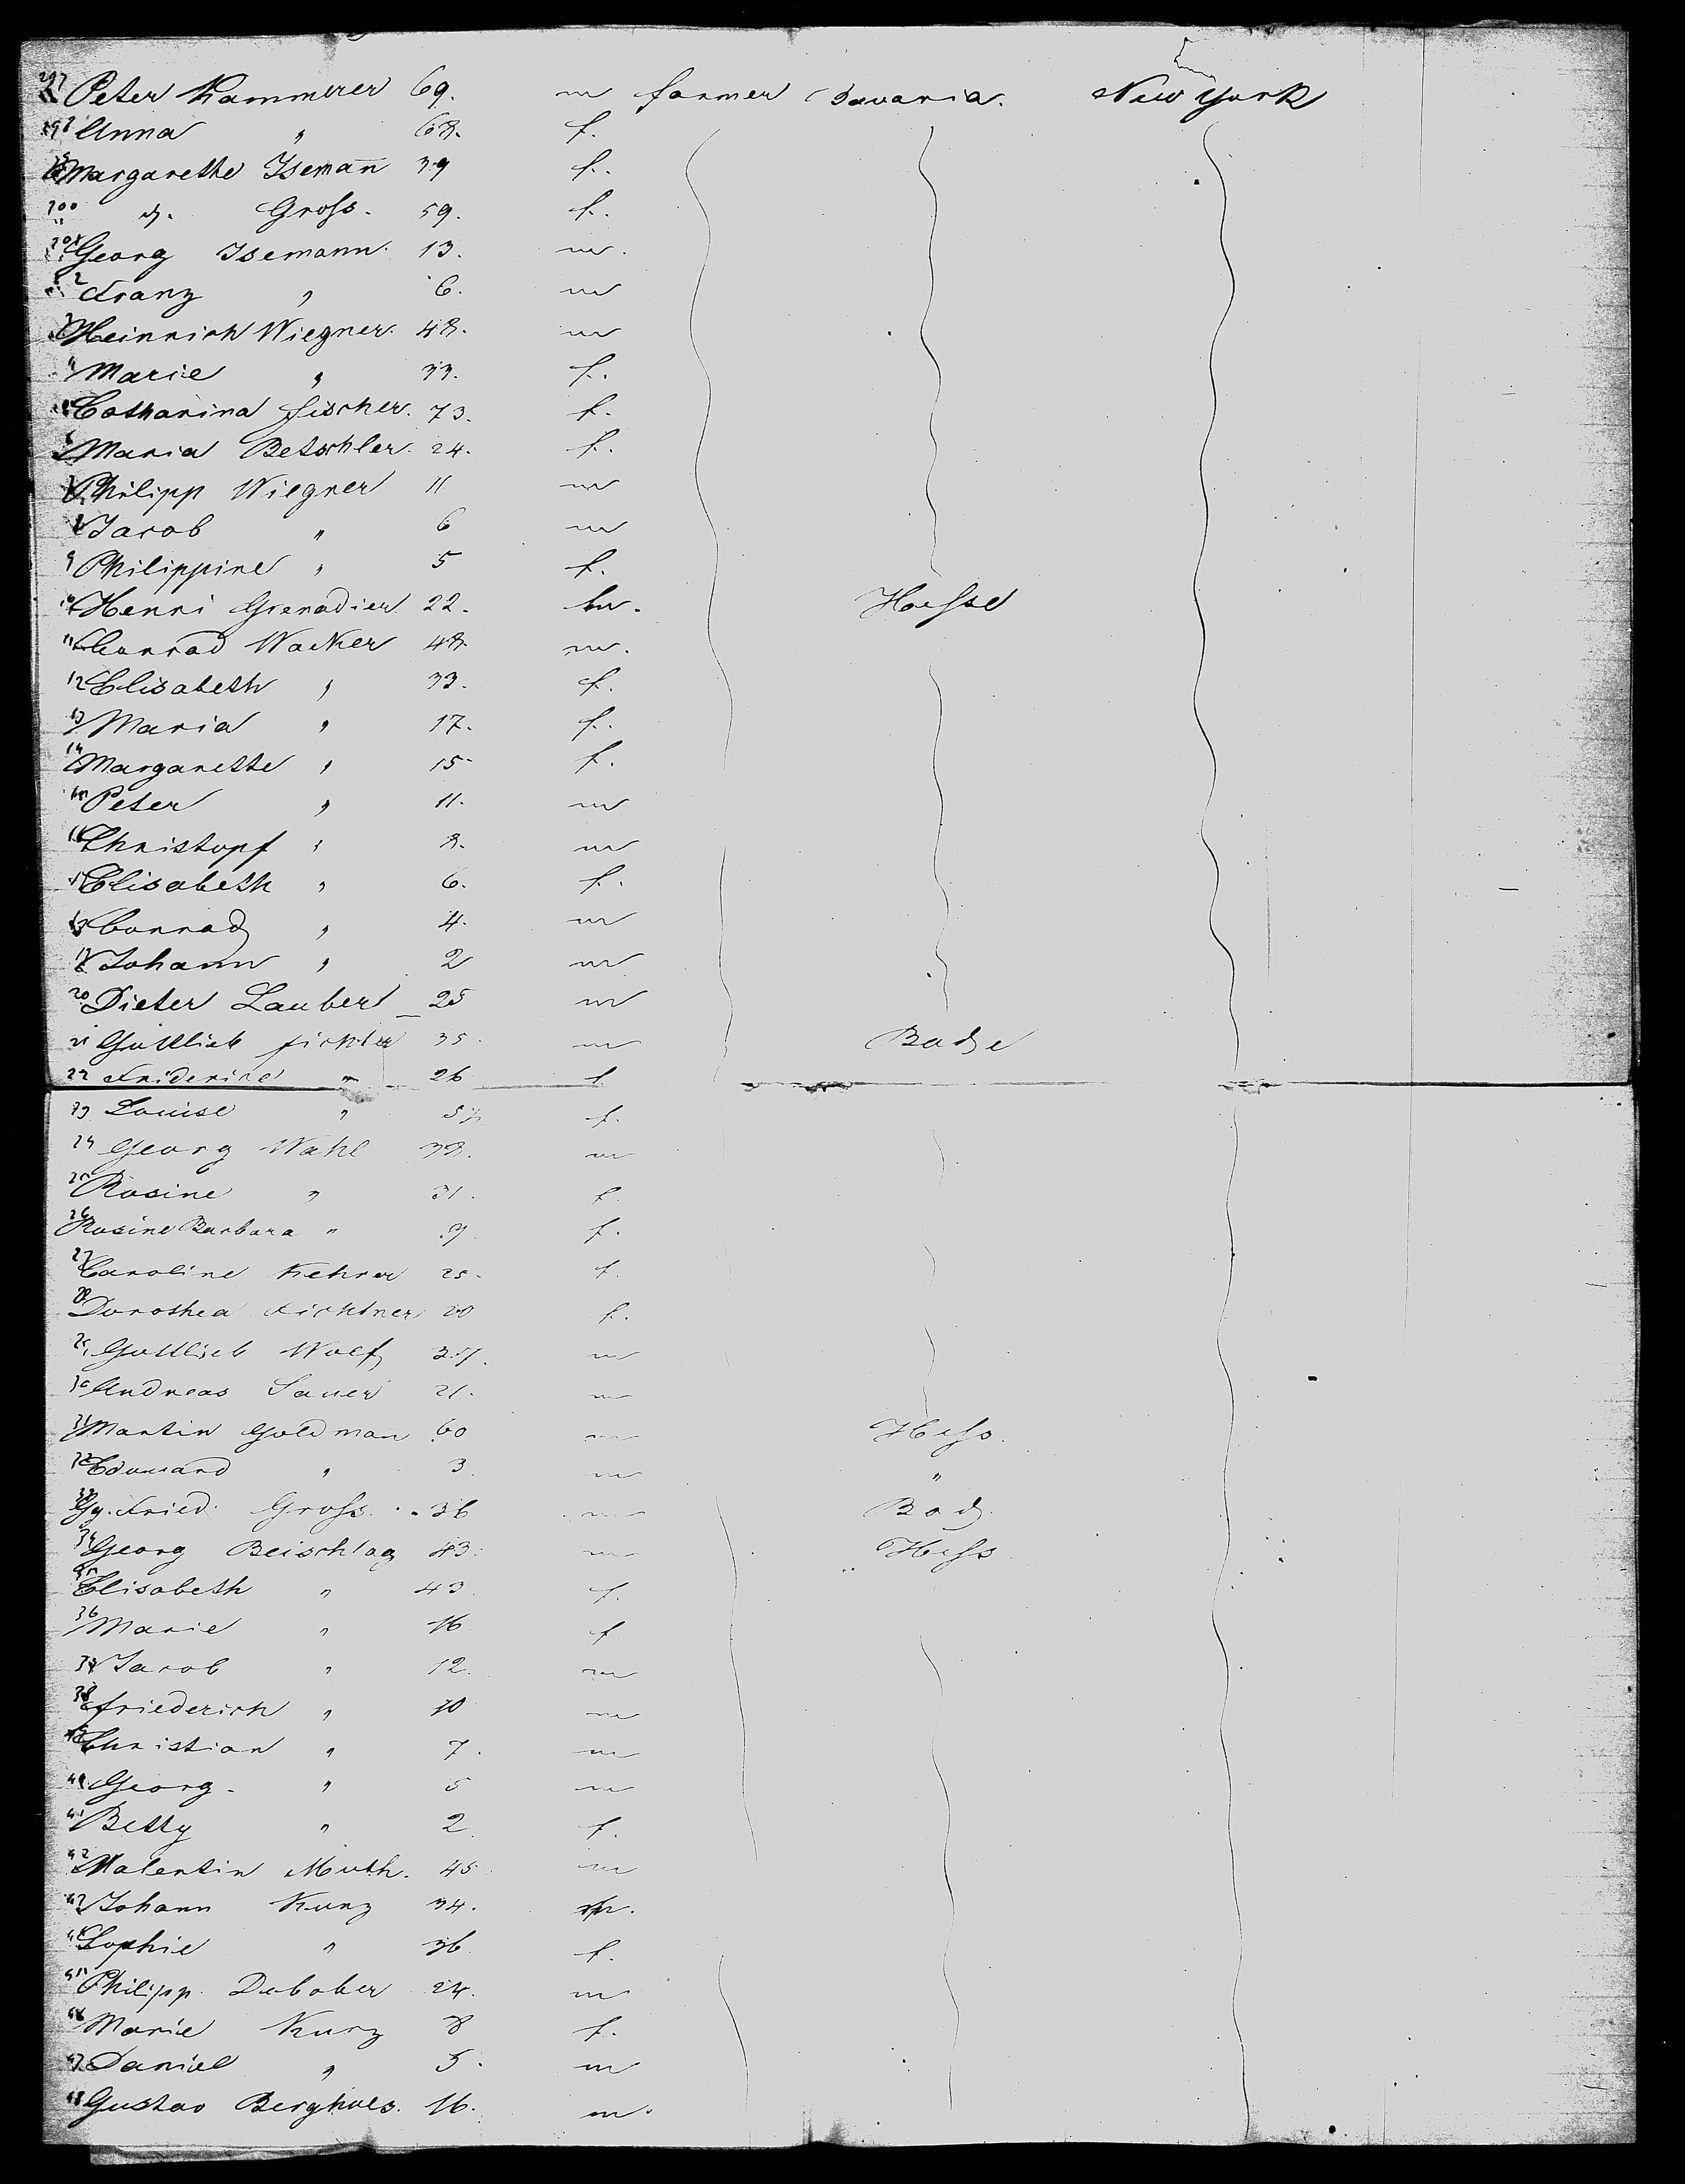 297 Peter Kammerer 69. m farmer Bavaria. New York
298 Anna " 68. f.
Margarethe Isemañ 39 f.
300 d. Gross. 59. f.
301 Georg Isemann. 13. m.
2 Franz " 6. m
3 Heinrich Wiegner. 48. m
4 Marie " 33. f.
Catharina Fischer. 73. f.
6 Maria Betschler. 24. f.
7 Philipp Wiegner 11 m
8 Jacob " 6 m
9 Philippine " 5 f.
10 Henri Grenadier 22. m. Hesse
11 Conrad Wacker 48. m.
12 Elisabeth " 33. f.
13 Maria " 17. f.
14 Margarethe " 15 f.
15 Peter " 11. m
16 Christopf " 8. m
17 Elisabeth " 6. f.
18 Conrad " 4. m
19 Johann " 2 m
20 Dieter Lauber 25 m
21 Gottlieb 35. m Bade
22 Friderike " 26 f
23 Louise " f.
24 Georg Wahl 38. m
25 Rosine " 31. f.
26 Rosine Barbara " 9 f.
27 Caroline Kehrer 25. f.
28 Dorothea Fichtner 20 f.
29 Gottlieb Wolf m
30 Andreas Sauer 21. m
31 Martin Goldman 60 m Hess.
32 Edouard " 3. m "
33 Gg. Fried. Gross. 36 m Bad.
34 Georg Beischlag 43. m Hess
35 Elisabeth " 43 f.
36 Marie " 16 f
37 Jacob " 12. m
38 Friederich " 10 m
39 Christian " 7. m
40 Georg. " 5 m
41 Betty " 2. f.
42 Valentin Muth. 45 m
43 Johann Kunz 34. m.
44 Sophie " 36 f.
45 Philipp Debober 24. m
46 Marie Kunz 8 f.
47 Daniel " 5. m
48 Gustav Bergholz. 16. m.